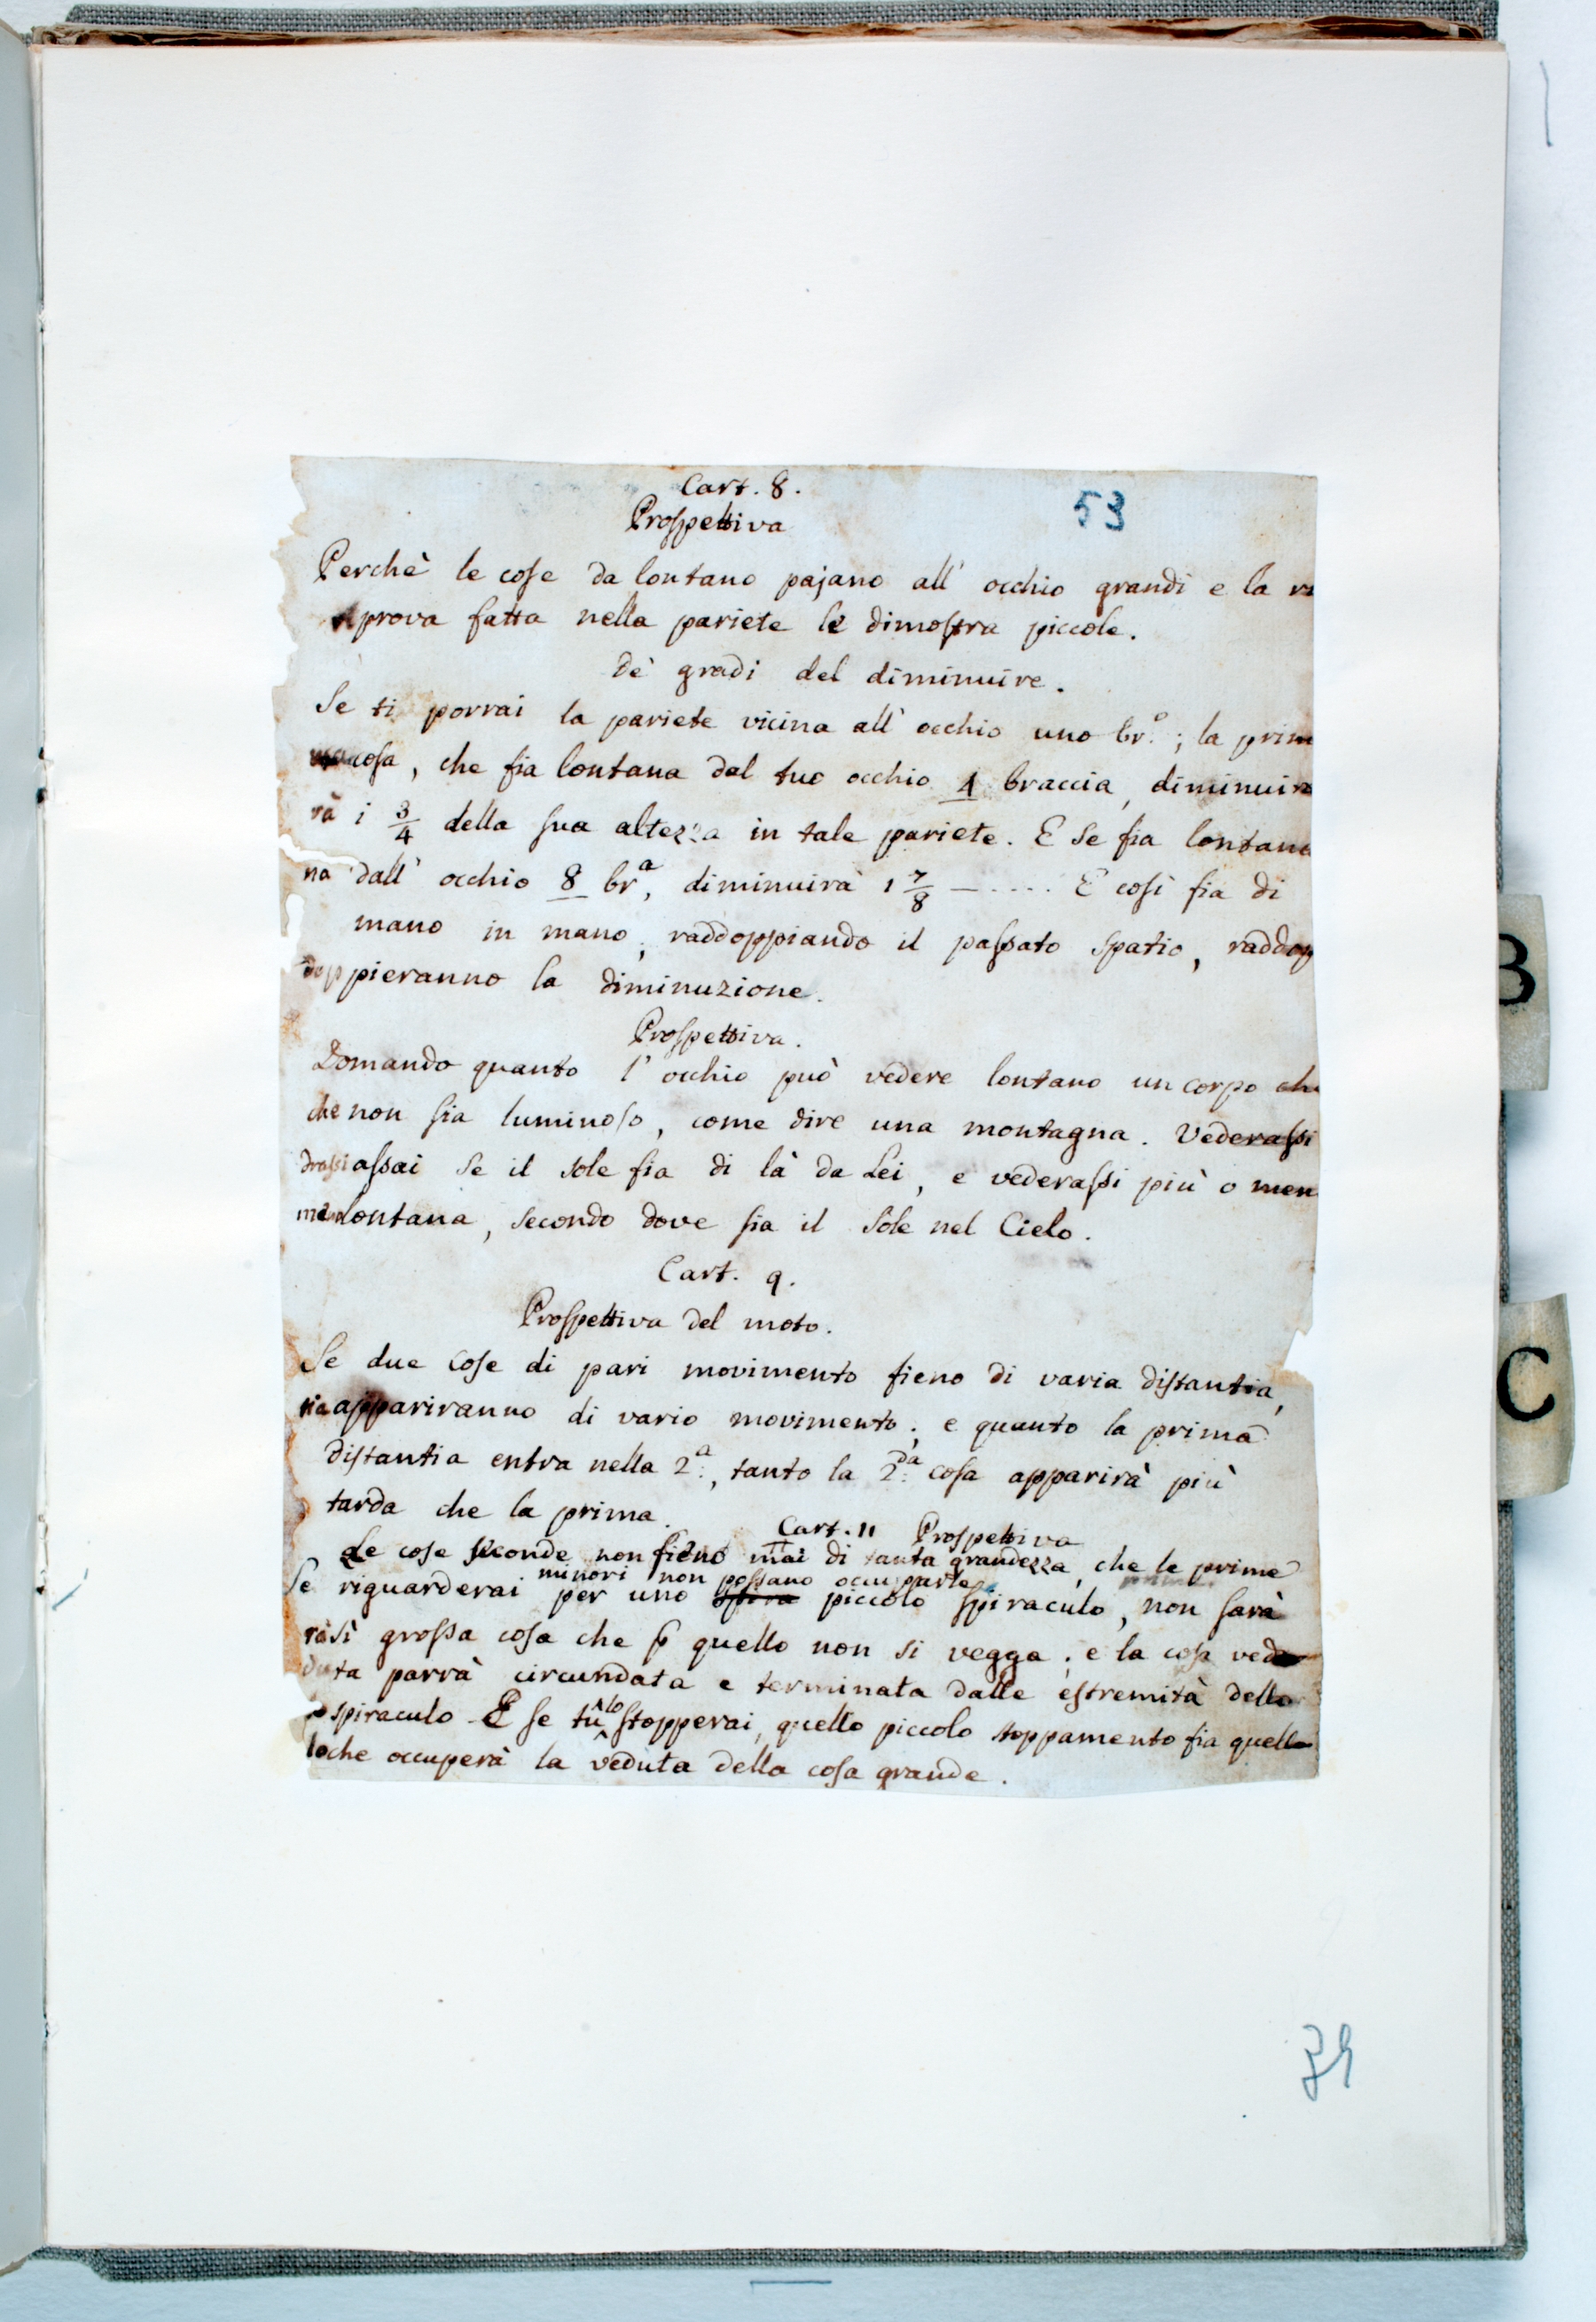 Cart. 8.
53
Prospettiva
Perchè le cose da lontano pajano all' occhio grandi e la
prova fatta nella pariete le dimostra piccole.
De' gradi del diminuire.
Se ti porrai la pariete vicina all' occhio uno br.º; la prim
cosa, che fia lontana dal tuo occhio 4 braccia, diminuir
rà i 3/4 della sua altezza in tale pariete. E se fia lontana
na dall' occhio 8 brª, diminuirà i 7/8 — ..... E così fia di
mano in mano; raddoppiando il passato spatio, raddop
doppieranno la diminuzione.
Prospettiva.
Domando quanto l' occhio può vedere lontano un corpo che
che non sia luminoso, come dire una montagna. Vederassi
drassi assai se il sole fia di là da Lei, e vederassi più o men
men lontana, secondo dove fia il Sole nel Cielo.
Cart. 9.
Prospettiva del moto.
Se due cose di pari movimento fieno di varia distantia,
tia appariranno di vario movimento; e quanto la prima
distantia entra nella 2.ª, tanto la 2.da cosa apparirà più
tarda che la prima.
Cart. 11 Prospettiva
Le cose seconde non fieno mai di tanta grandezza, che le prime
minori non possano occuparle
Se riguarderai per uno piccolo spiraculo, non sarà
rà sì grossa cosa che p quello non si vegga; e la cosa vedu
duta parrà circundata e terminata dalle estremità dello
spiraculo E se tu lo stopperai, quello piccolo stoppamento fia quello
lo che occuperà la veduta della cosa grande.
B
C